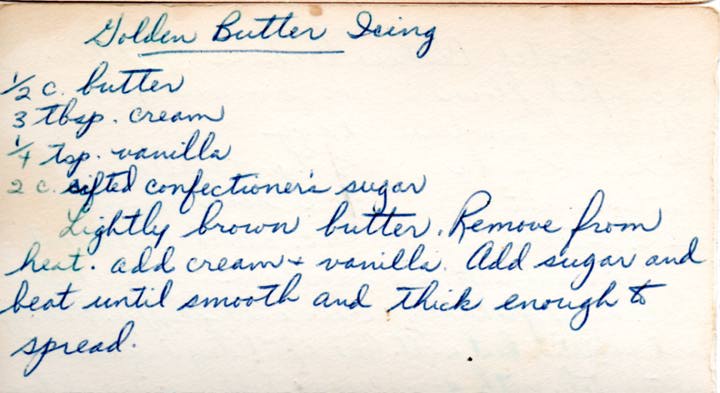 Golden Butter Icing
1/2 c. butter
3 tbsp. cream
1/4 tsp. vanilla
2 c. sifted confectioner's sugar
Lightly brown butter. Remove from
heat. add cream + vanilla. Add sugar and
beat until smooth and thick enough to
spread.